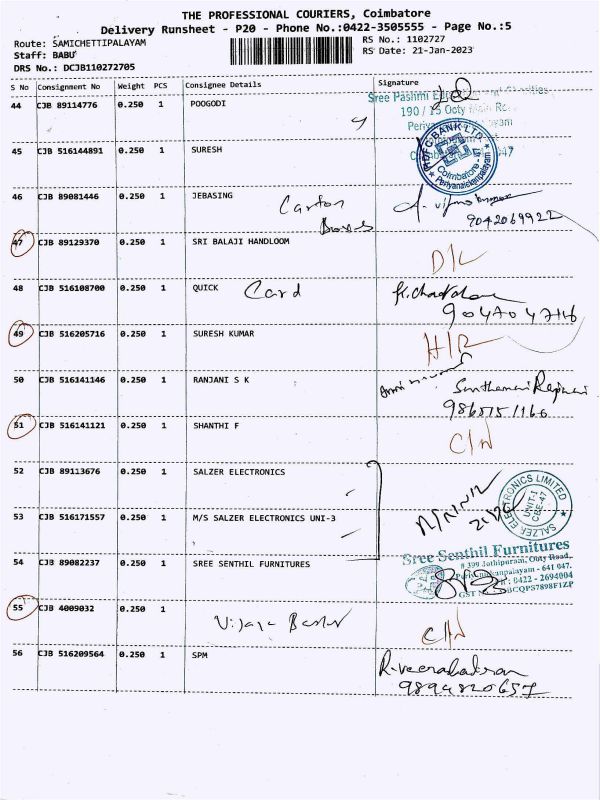 THE PROFESSIONAL COURIERS, Coimbatore
Delivery Runsheet - P20 - Phone No.:0422-3505555 - Page No.:5
Route: SAMICHETTIPALAYAM
Staff: BABU
DRS No.: DCJB110272705
RS No.: 1102727
RS Date: 21-Jan-2023
S No Consignment No Weight PCS Consignee Details Signature
44 CJB 89114776 0.250 1 POOGODI
Sree Pashmi
190 / 15 Ooty Main
45 CJB 516144891 0.250 1 SURESH
HDFC BANK LTD
Coimbatore
Periyanaickenpalayam
46 CJB 89081446 0.250 1 JEBASING Carton Boxes
9042069922
47 CJB 89129370 0.250 1 SRI BALAJI HANDLOOM D/L
48 CJB 516108700 0.250 1 QUICK Card
9047047416
49 CJB 516205716 0.250 1 SURESH KUMAR H/R
50 CJB 516141146 0.250 1 RANJANI S K
51 CJB 516141121 0.250 1 SHANTHI F
52 CJB 89113676 0.250 1 SALZER ELECTRONICS
SALZER ELECTRONICS LIMITED
UNIT-1
CBE-47
53 CJB 516171557 0.250 1 M/S SALZER ELECTRONICS UNI-3
54 CJB 89082237 0.250 1 SREE SENTHIL FURNITURES
Sree Senthil Furnitures
# 399 Jothipuram, Ooty Road,
Periyanaickanpalayam - 641 047.
: 0422 - 2694004
55 CJB 4009032 0.250 1
56 CJB 516209564 0.250 1 SPM
R.veerabadran
9894820657